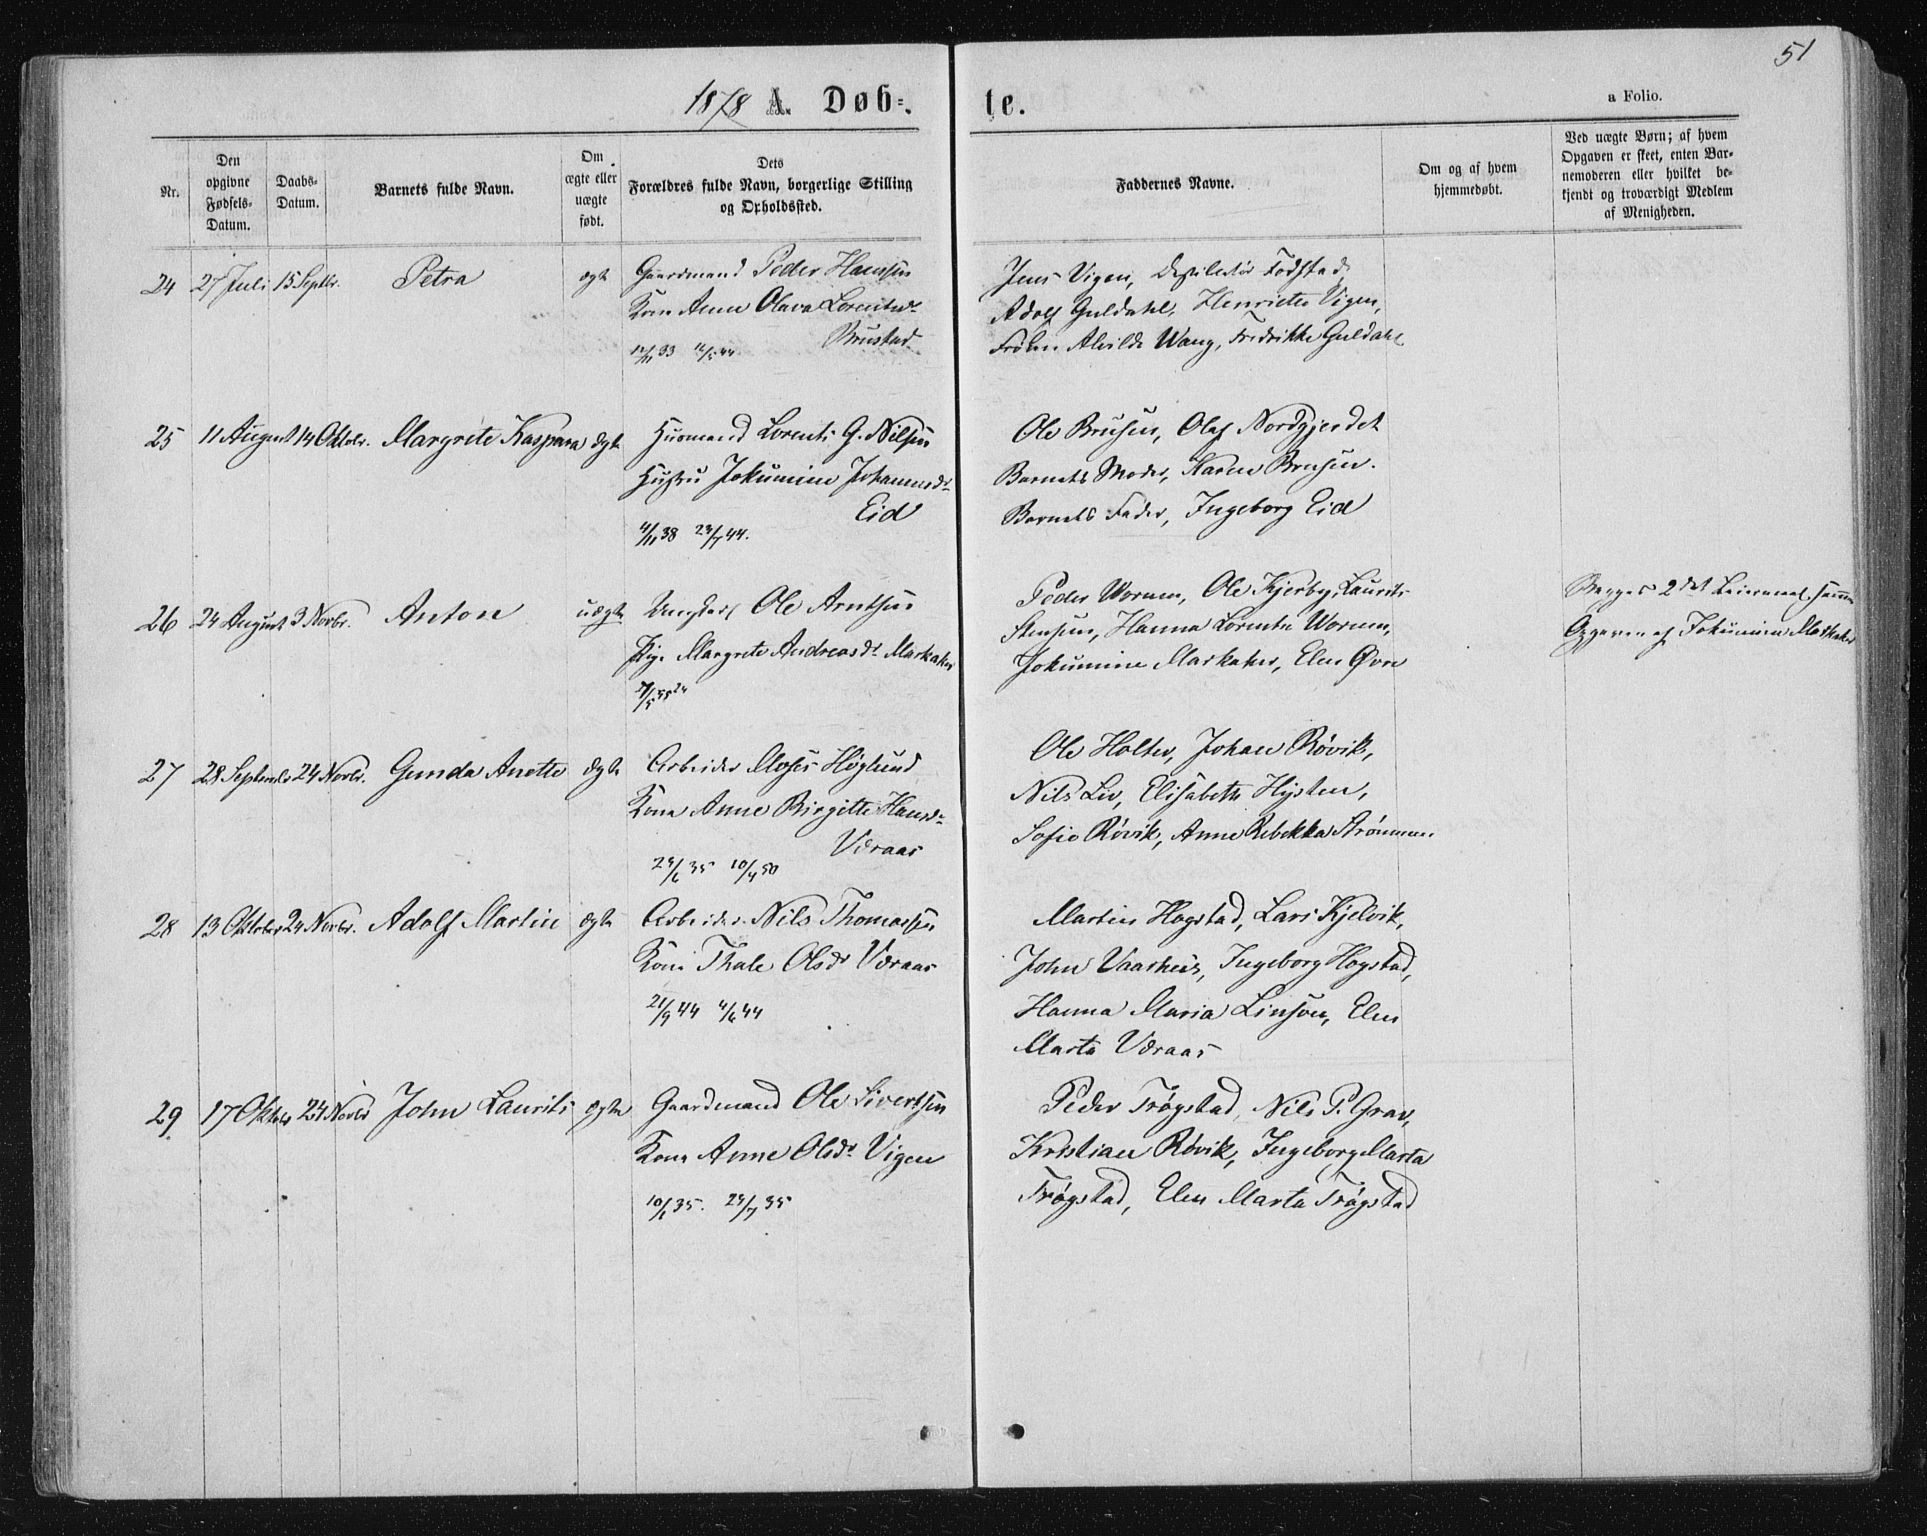 51
1878 A. Døb-
te.
a Folio.
Nr.
Den
opgivne
Fødsels-
Datum.
Daabs-
Datum.
Barnets fulde Navn.
Om
ægte eller
uægte
født.
Dets
Forældres fulde Navn, borgerlige Stilling
og Opholdssted.
Faddernes Navne.
Om og af hvem
hjemmedøbt.
Ved uægte Børn; af hvem
Opgaven er skeet, enten Bar-
nemoderen eller hvilket be-
kjendt og troværdigt Medlem
af Menigheden.
24 27 Juli 15 Septbr. Petra ægte Gaardmand Peder Hansen
Kone Anne Olava Lorentsdr
Brustad
Jens Vigen, Fodstad,
Adolf Guldahl, Henriette Vigen,
Frøken Alvilde Wang, Fredrikke Guldahl
25 11 August 14 Oktobr. Margrete Kaspara ægte Husmand Lorents G. Nilsen
Hustru Jokumine Johannesdr
Eid
4/11 38 23/7 44.
Ole Brusen, Olaf Nordgjerdet
Barnets Moder, Karen Brusen.
Barnets Fader, Ingeborg Eid
26 24 August 3 Novbr. Anton uægte Ungkarl Ole Arntsen
Pige Margrete Andreasdr Markaker
Peder Worum, Ole Kjerby, Laurits
Stensen, Hanna Lorentse Worum,
Jokumine Markaker, Elen Øvre
Begges 2det Leiermaal, samme
Opgaven af Jokumine Markaker
27 28 Septembr 24 Novbr. Gunda Anette ægte Arbeider Moses Høglund
Kone Anne Birgitte Hansdr
Væraas
29/6 35 10/4 50
Ole Holter, Johan Røvik,
Nils Liv, Elisabeth Hysten,
Sofie Røvik, Anne Rebekka Strømmen
28 13 Oktober 24 Novbr. Adolf Martin ægte Arbeider Nils Thomassen
Kone Thale Olsdr Væraas
21/9 44 4/6 44
Martin Hogstad, Lars Kjelvik,
John Vaarheis, Ingeborg Hogstad,
Hanna Maria Linsøen, Elen
Marta Væraas
29 17 Oktobr 24 Novbr John Laurits ægte Gaardmand Ole Sivertsen
Kone Anne Olsdr Vigen
10/1 35. 29/7 35
Peder Trøgstad, Nils P. Grav,
Kristian Røvik, Ingeborg Marta
Trøgstad, Elen Marta Trøgstad